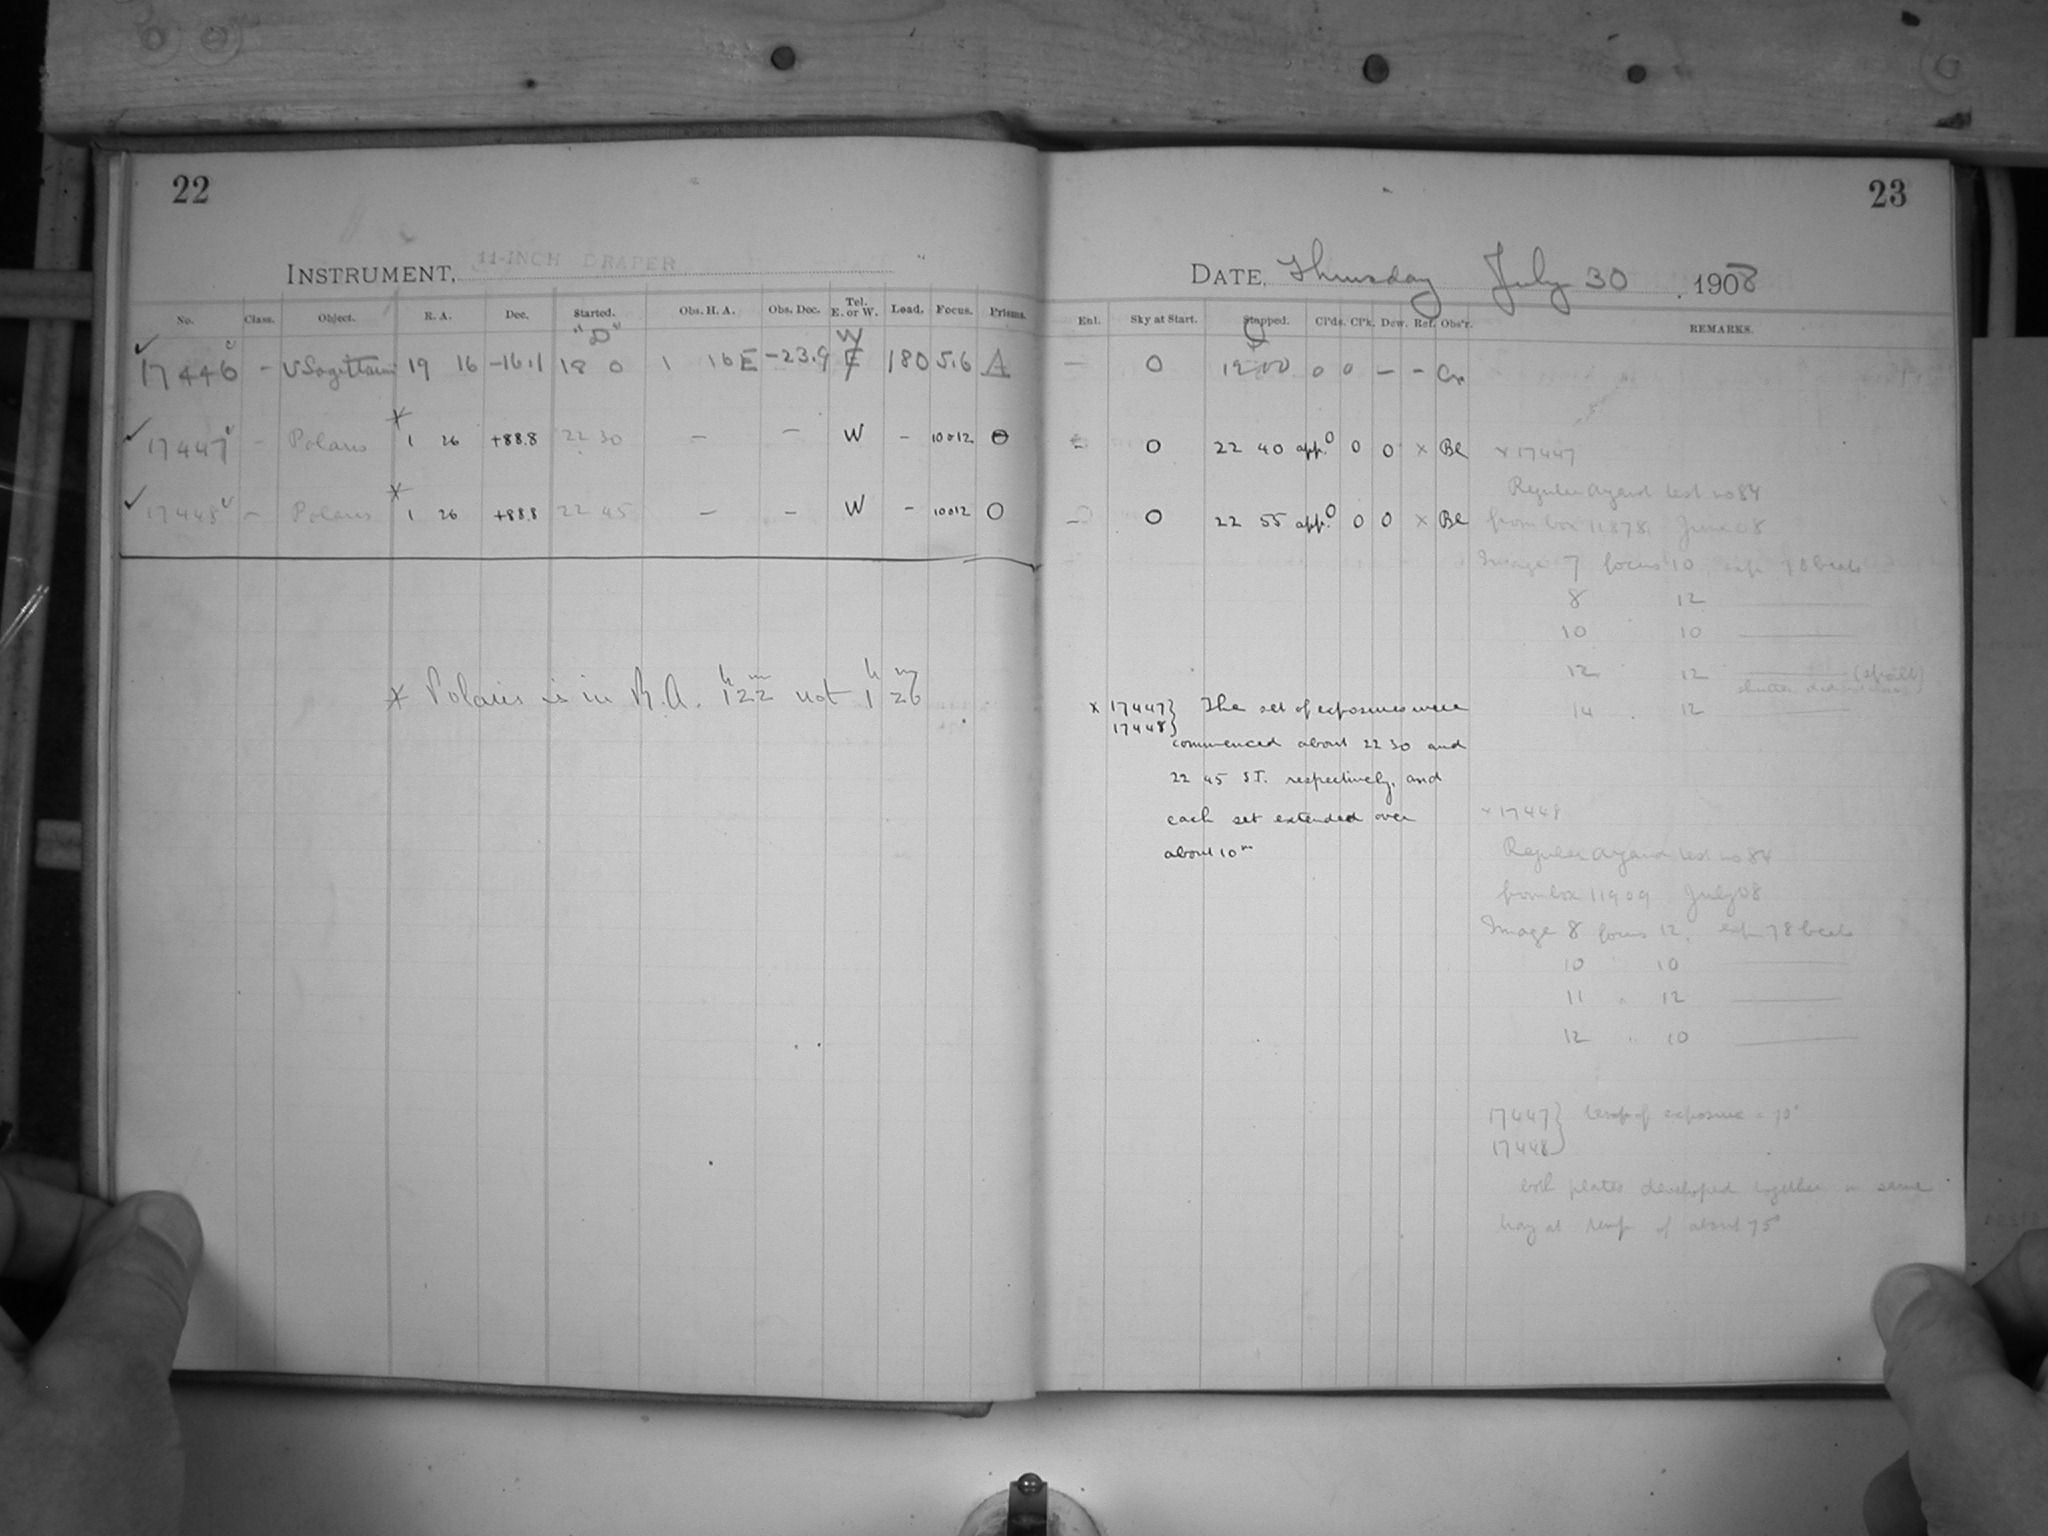 22
INSTRUMENT, 11-INCH DRAPER
No. Class. Object. R. A. Dec. Started. Obs. H. A. Obs. Dec. Tel. E. or W. Load. Focus. Prisms.
"D" W
17446 – υ Sagittarii 19 16 -16.1 18 0 1 16 E -23.9 E 180 5.6 A
17447 – Polaris * 1 26 +88.8 22 30 – – W – 10 or 12 0
17448 – Polaris * 1 26 +88.8 22 45 – – W – 10 or 12 0
* Polaris is in R.A. 1h 22m not 1h 26m
23
DATE, Thursday July 30, 1908
Enl. Sky at Start. Stopped. Cl'ds. Cl'k. Dew. Ref. Obs'r. REMARKS.
– 0 19 00 0 0 – –
– 0 22 40 app. 0 0 0 x Bl
– 0 22 55 app. 0 0 0 x Bl
x 17447 } The set of exposures were
17448 }
commenced about 22 30 and
22 45 S.T. respectively, and
each set extended over
about 10m
x 17447
Regular test no 84
from box 11878 June 08
Image 7 focus 10, exp. beats
8 12
10 10
12 12
shutter did not
14 12
x 17448
Regular test no 84
from box 11909 July 08
Image 8 focus 12, exp 78 beats
10 10
11 12
12 10
17447 } temp of exposure =
17448 }
both plates developed together in same
tray at temp of about 75°